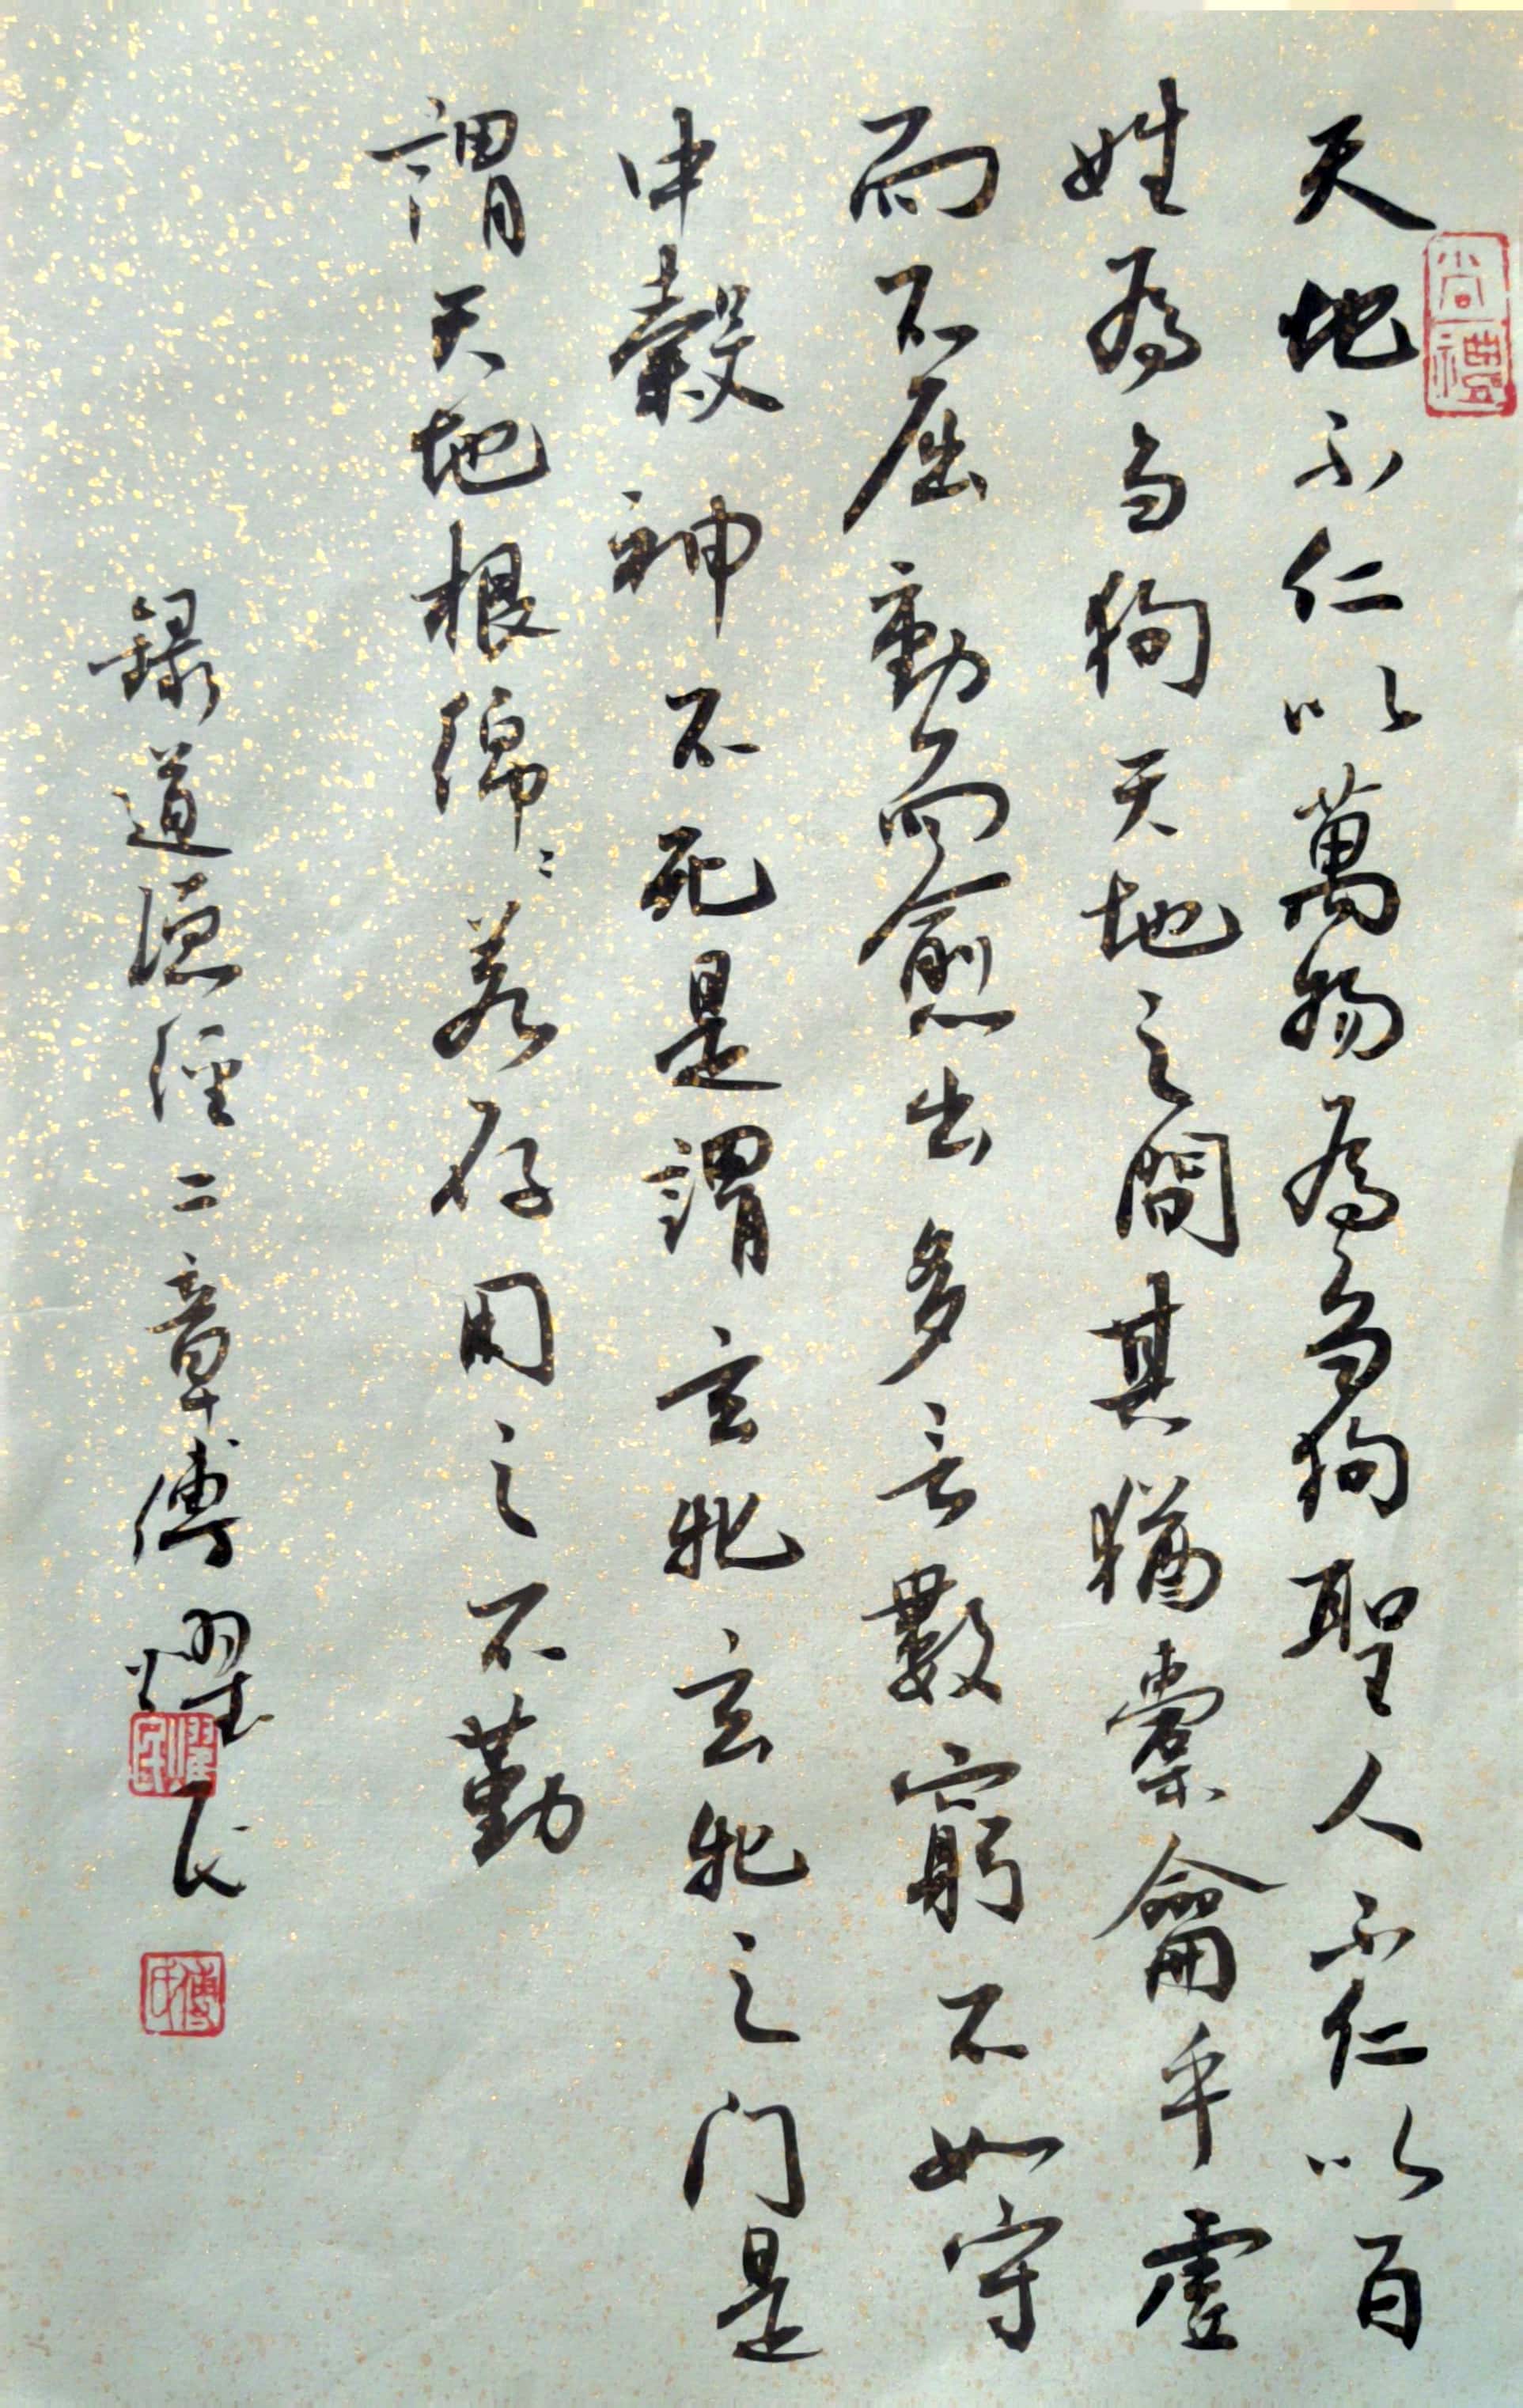 天地不仁以萬物為芻狗聖人不仁以百
姓為芻狗天地之間其猶橐籥乎虛
而不屈動而愈出多言數窮不如守
中穀神不死是謂玄牝玄牝之门是
謂天地根綿〻若存用之不勤
錄道德經二章傅耀民
尚禮
耀民
傅氏